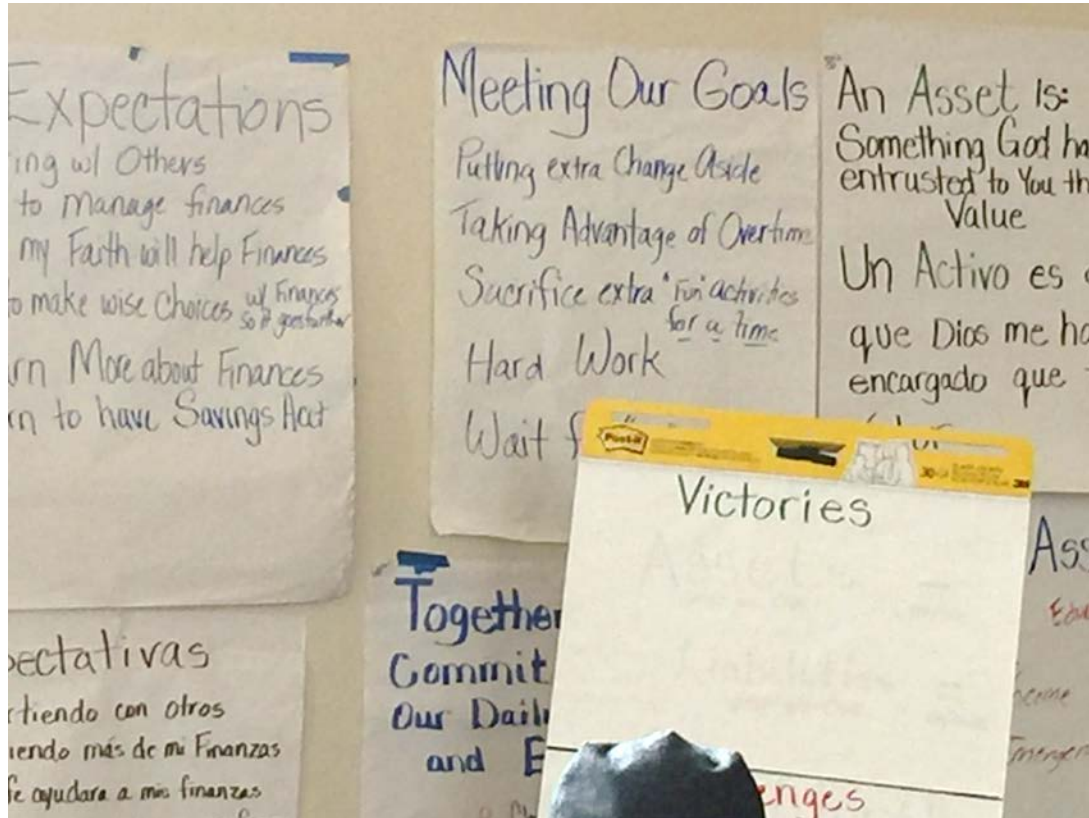 Expectations
ing w/ Others
to manage finances
my Faith will help Finances
o make wise Choices w/ Finances
so it goes further
rn More about Finances
rn to have Savings Acct
Meeting Our Goals
Putting extra Change Aside
Taking Advantage of Overtime
Sacrifice extra "Fun" activities
for a time
Hard Work
Wait f
An Asset Is:
Something God ha
entrusted to You th
Value
Un Activo es
que Dios me ha
encargado que
Post-it
30
3M
Victories
enges
Together
Commit
Our Daily
and E
ectativas
rtiendo con otros
iendo más de mi Finanzas
fe ayudara a mis finanzas
Ass
Edu
ncome
Emergen